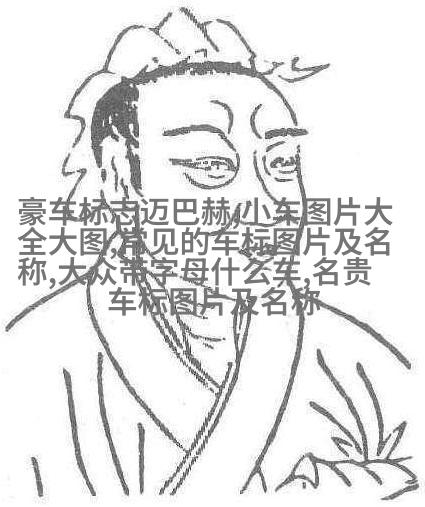 豪车标志迈巴赫,小车图片大
全大图,常见的车标图片及名
称,大众带字母什么车,名贵
车标图片及名称